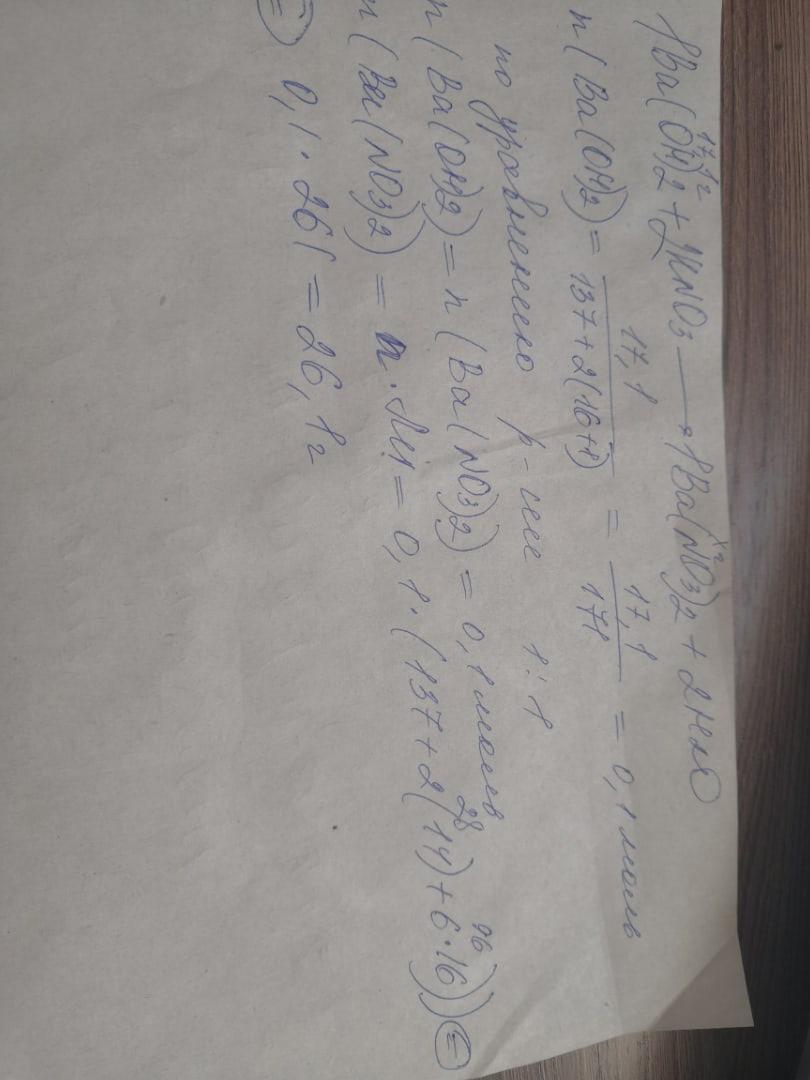 17,1г хг
1Ba(OH)2 + 2HNO3 → 1Ba(NO3)2 + 2H2O
n(Ba(OH)2) = 17,1 / 137+2(16+1) = 17,1 / 171 = 0,1 моль
по уравнению р-ции 1:1
n(Ba(OH)2) = n(Ba(NO3)2) = 0,1 моль
28 96
m(Ba(NO3)2) = n·M = 0,1·(137+2(14)+6·16)) =
= 0,1·261 = 26,1г